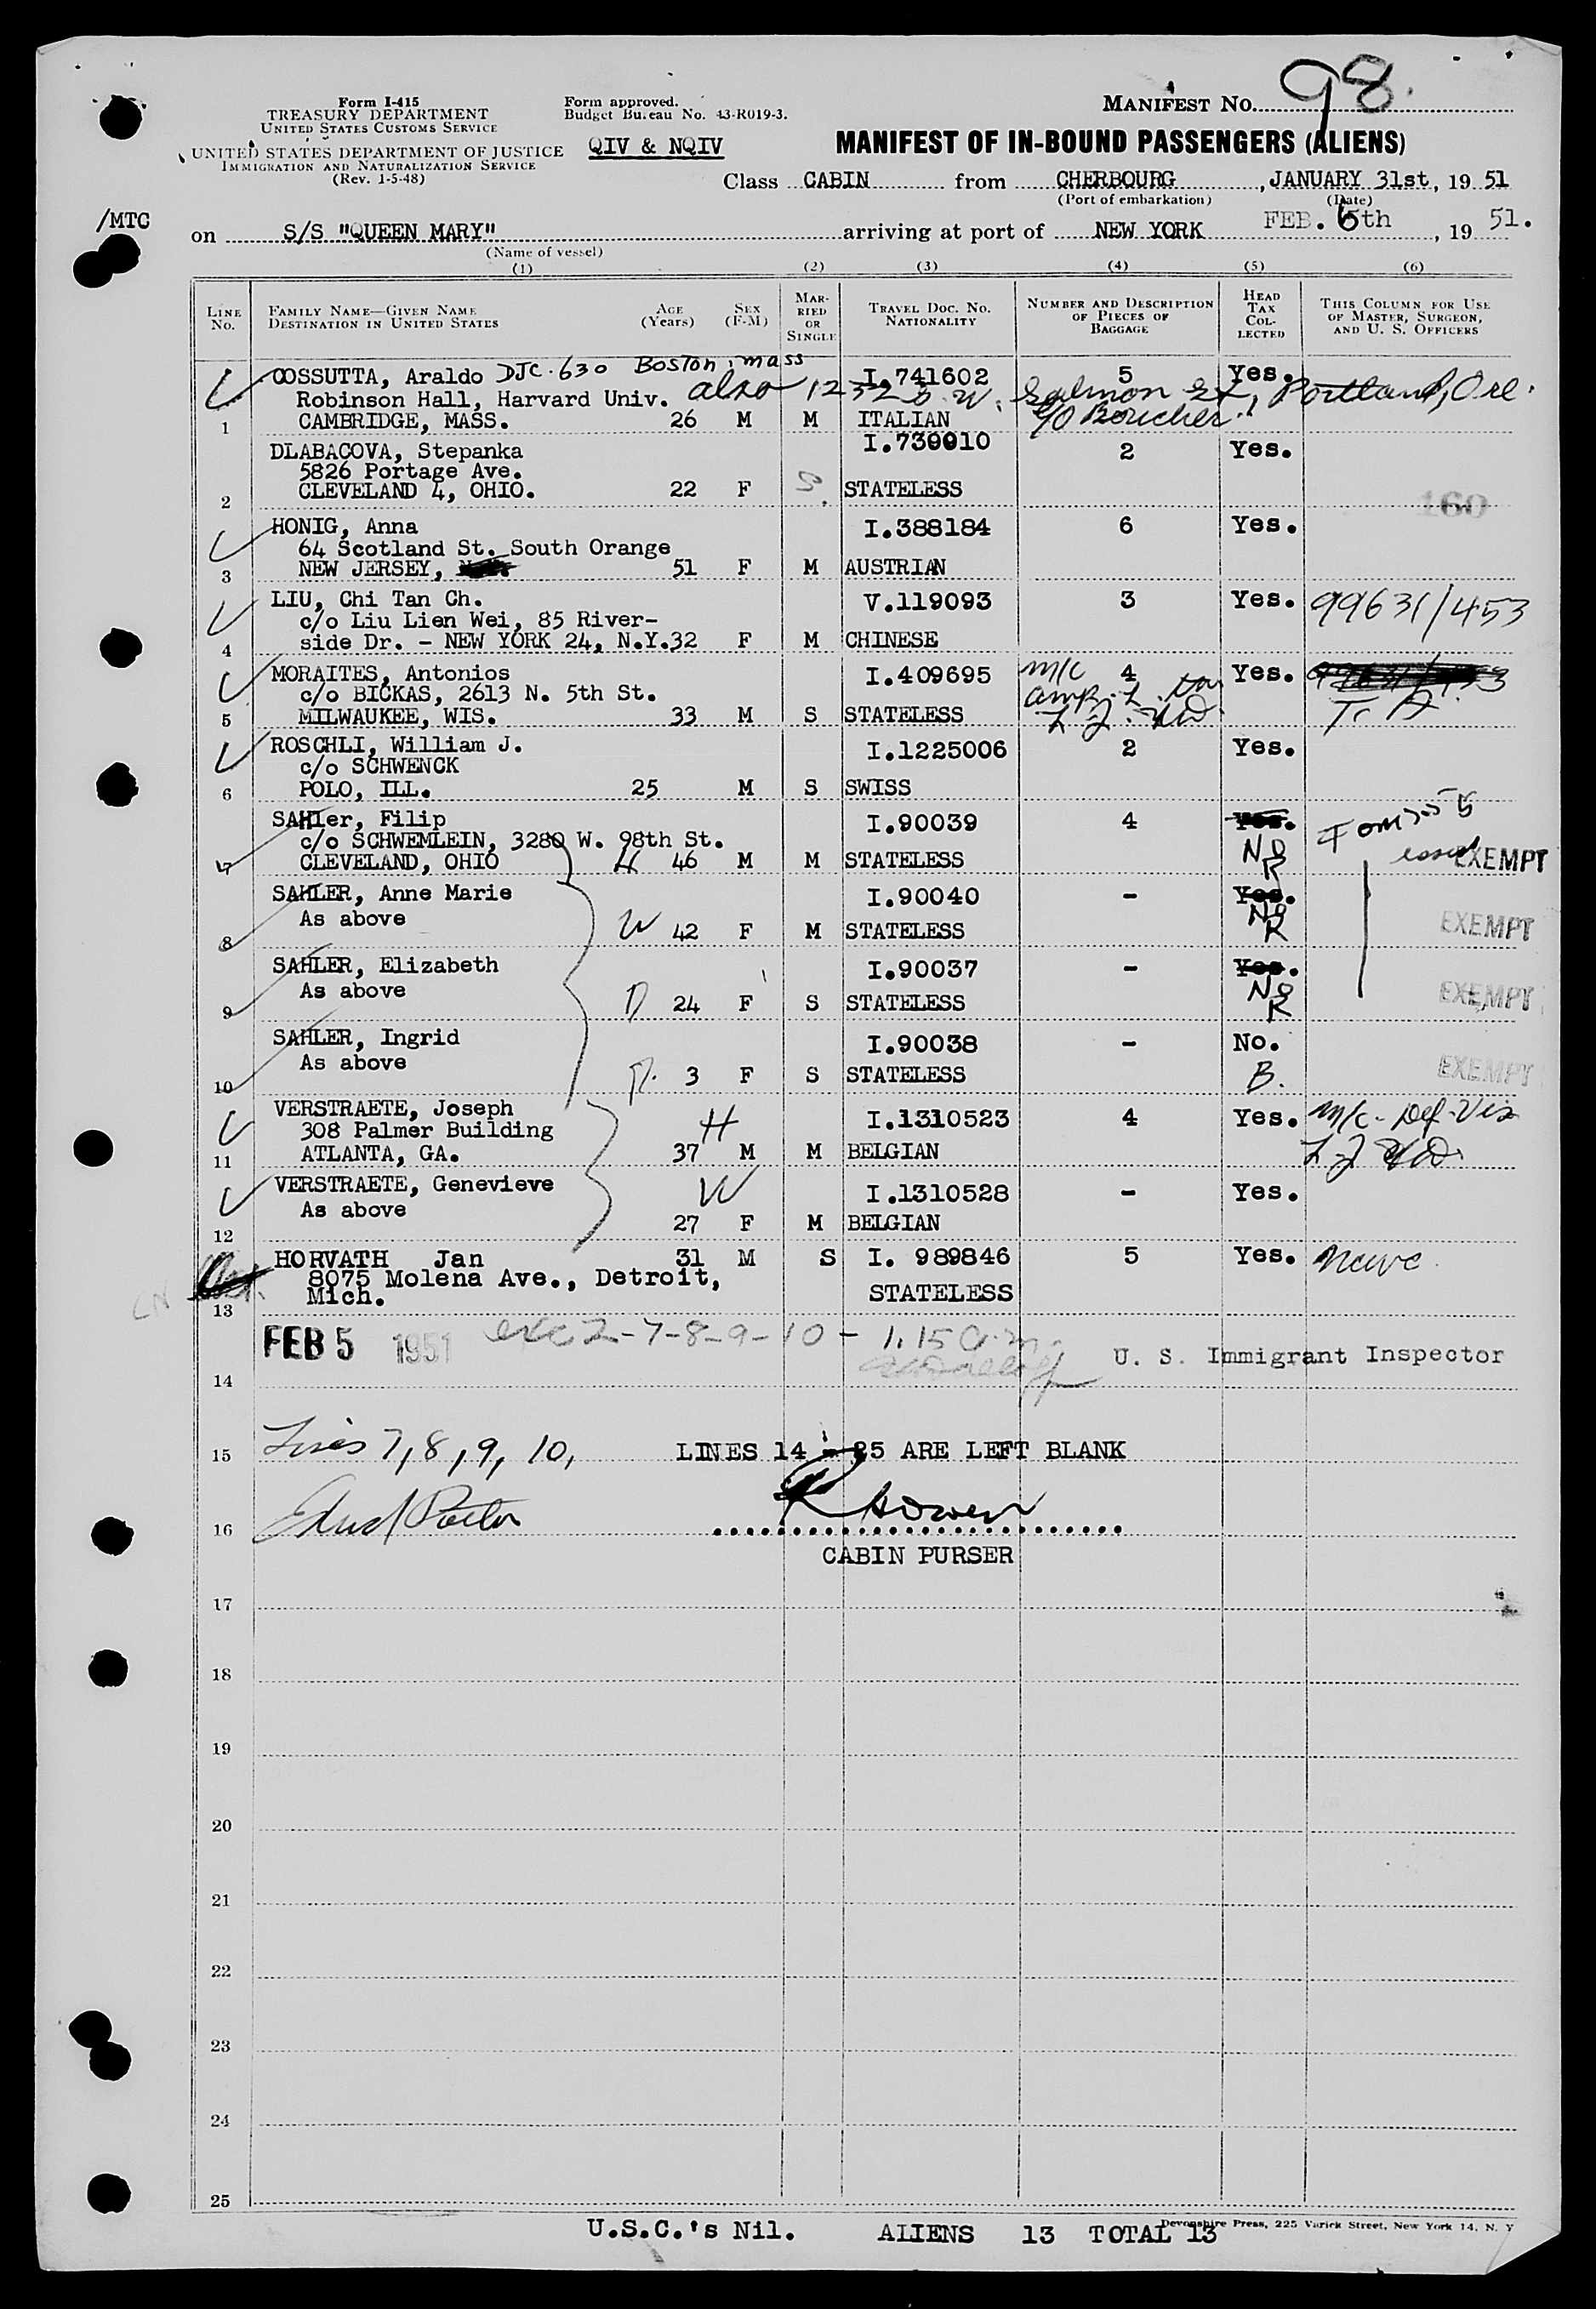 Form I-415
TREASURY DEPARTMENT
UNITED STATES CUSTOMS SERVICE
UNITED STATES DEPARTMENT OF JUSTICE
IMMIGRATION AND NATURALIZATION SERVICE
(Rev. 1-5-48)
Form approved.
Budget Bureau No. 43-R019-3.
QIV & NQIV
MANIFEST No. 98.
MANIFEST OF IN-BOUND PASSENGERS (ALIENS)
Class CABIN from CHERBOURG, JANUARY 31st, 19 51
(Port of embarkation) (Date)
/MTC
on S/S "QUEEN MARY" arriving at port of NEW YORK FEB. 5th, 19 51.
(Name of vessel)
(1) (2) (3) (4) (5) (6)
LINE No. FAMILY NAME—GIVEN NAME DESTINATION IN UNITED STATES AGE (Years) SEX (F-M) MARRIED OR SINGLE TRAVEL DOC. NO. NATIONALITY NUMBER AND DESCRIPTION OF PIECES OF BAGGAGE HEAD TAX COLLECTED THIS COLUMN FOR USE OF MASTER, SURGEON, AND U. S. OFFICERS
COSSUTTA, Araldo DJC-630 Boston, mass I.741602 5 Yes.
Robinson Hall, Harvard Univ. also 1232 S.W. Salmon St, Portland, Ore.
1 CAMBRIDGE, MASS. 26 M M ITALIAN c/o Boucher
DLABACOVA, Stepanka I.739910 2 Yes.
5826 Portage Ave.
2 CLEVELAND 4, OHIO. 22 F S. STATELESS
160
HONIG, Anna I.388184 6 Yes.
64 Scotland St. South Orange
3 NEW JERSEY, 51 F M AUSTRIAN
LIU, Chi Tan Ch. V.119093 3 Yes. 99631/453
c/o Liu Lien Wei, 85 River-
4 side Dr. - NEW YORK 24, N.Y. 32 F M CHINESE
MORAITES, Antonios I.409695 m/c 4 Yes.
c/o BICKAS, 2613 N. 5th St.
5 MILWAUKEE, WIS. 33 M S STATELESS
ROSCHLI, William J. I.1225006 2 Yes.
c/o SCHWENCK
6 POLO, ILL. 25 M S SWISS
SAHler, Filip I.90039 4 Yes.
c/o SCHWEMLEIN, 3280 W. 98th St.
7 CLEVELAND, OHIO H 46 M M STATELESS No R EXEMPT
SAHLER, Anne Marie I.90040 - Yes.
As above
8 W 42 F M STATELESS No R EXEMPT
SAHLER, Elizabeth I.90037 - Yes.
As above
9 D 24 F S STATELESS No R EXEMPT
SAHLER, Ingrid I.90038 - No.
As above
10 D. 3 F S STATELESS B. EXEMPT
VERSTRAETE, Joseph H I.1310523 4 Yes. m/c - Def-Vis
308 Palmer Building
11 ATLANTA, GA. 37 M M BELGIAN
VERSTRAETE, Genevieve W I.1310528 - Yes.
As above
12 27 F M BELGIAN
HORVATH Jan 31 M S I. 989846 5 Yes.
8075 Molena Ave., Detroit,
13 Mich. STATELESS
FEB 5 1951 exc 2-7-8-9-10- 1.15 a.m.
U. S. Immigrant Inspector
14
15 Lines 7, 8, 9, 10, LINES 14 - 25 ARE LEFT BLANK
16
CABIN PURSER
17
18
19
20
21
22
23
24
25
U.S.C.'s Nil. ALIENS 13 TOTAL 13
Devonshire Press, 225 Varick Street, New York 14, N. Y